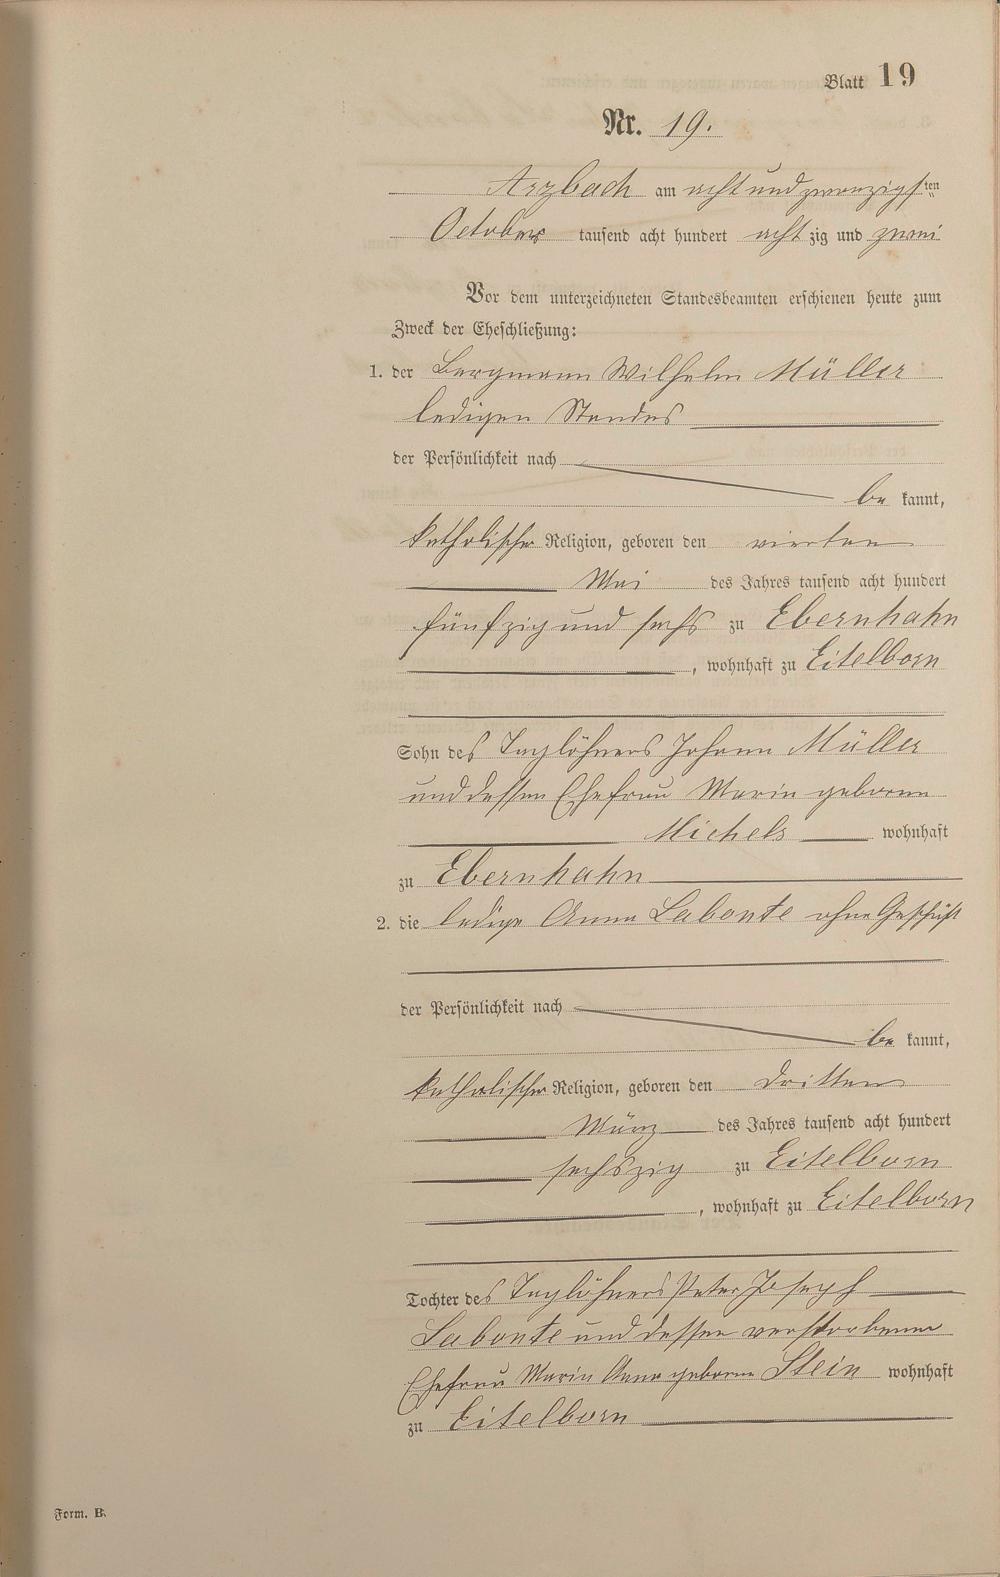 Blatt 19
Nr. 19.
Arzbach am acht und zwanzigsten
October tausend acht hundert acht zig und zwei
Vor dem unterzeichneten Standesbeamten erschienen heute zum
Zweck der Eheschließung:
1. der Bergmann Wilhelm Müller
ledigen Standes
der Persönlichkeit nach
be kannt,
katholischer Religion, geboren den vierten
Mai des Jahres tausend acht hundert
fünfzig und sechs zu Ebernhahn
, wohnhaft zu Eitelborn
Sohn des Taglöhners Johann Müller
und dessen Ehefrau Maria geborene
Michels wohnhaft
zu Ebernhahn
2. die ledige Anna Labonte ohne Geschäft
der Persönlichkeit nach
be kannt,
katholischer Religion, geboren den dritten
März des Jahres tausend acht hundert
sechszig zu Eitelborn
, wohnhaft zu Eitelborn
Tochter des Taglöhners Peter Joseph
Labonte und dessen verstorbenen
Ehefrau Maria Anna geborene Stein wohnhaft
zu Eitelborn
Form. B.